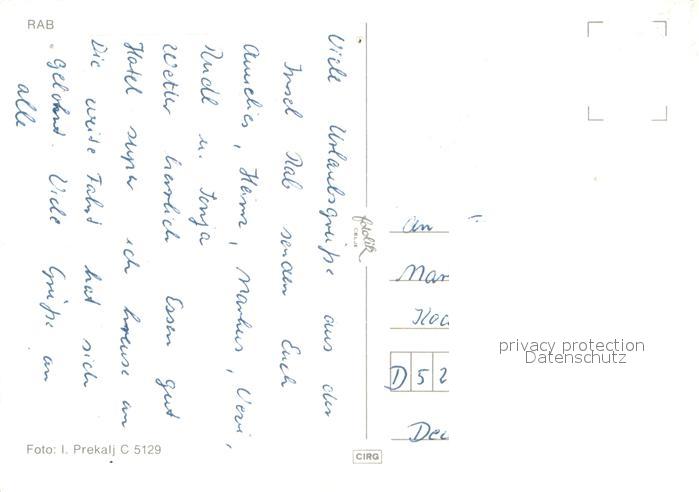 RAB
Viele Urlaubsgrüße aus der
Insel Rab senden Euch
Annelies, Heinz, Markus, Vevi,
Rudl u. Sonja
Wetter herrlich Essen gut
Hotel super ich krause an
Die weite Fahrt hat sich
gelohnt. Viele Grüße an
alle
Foto: I. Prekalj C 5129
fotolik
CELJE
CIRG
An
Mar
Koc
D 5 2
privacy protection
Datenschutz